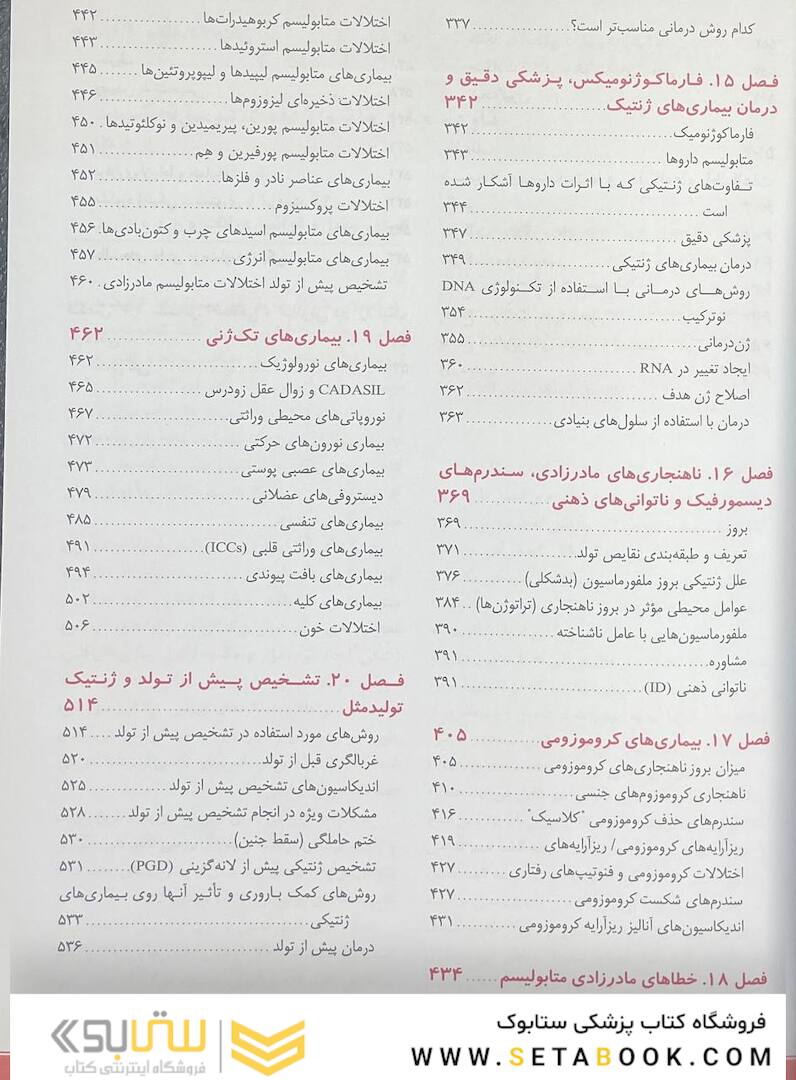 کدام روش درمانی مناسب‌تر است؟ ................. ۳۳۷
فصل ۱۵. فـارماکـوژنومیکس، پـزشکی دقـیق و
درمان بیماری‌های ژنتیک ................. ۳۴۲
فارماکوژنومیک ................. ۳۴۲
متابولیسم داروها ................. ۳۴۳
تـفاوت‌های ژنـتیکی کـه بـا اثـرات داروهـا آشکـار شـده
است ................. ۳۴۴
پزشکی دقیق ................. ۳۴۷
درمان بیماری‌های ژنتیکی ................. ۳۴۹
روش‌هـــای درمـانی بـا اسـتفاده از تکـنولوژی DNA
نوترکیب ................. ۳۵۴
ژن‌درمانی ................. ۳۵۵
ایجاد تغییر در RNA ................. ۳۶۰
اصلاح ژن هدف ................. ۳۶۲
درمان با استفاده از سلول‌های بنیادی ................. ۳۶۳
فصل ۱۶. ناهنجاری‌های مادرزادی، سـندرم‌هـای
دیسمورفیک و ناتوانی‌های ذهنی ................. ۳۶۹
بروز ................. ۳۶۹
تعریف و طبقه‌بندی نقایص تولد ................. ۳۷۱
علل ژنتیکی بروز ملفورماسیون (بدشکلی) ................. ۳۷۶
عوامل محیطی مؤثر در بروز ناهنجاری (تراتوژن‌ها) .. ۳۸۴
ملفورماسیون‌هایی با عامل ناشناخته ................. ۳۹۰
مشاوره ................. ۳۹۱
ناتوانی ذهنی (ID) ................. ۳۹۱
فصل ۱۷. بیماری‌های کروموزومی ................. ۴۰۵
میزان بروز ناهنجاری‌های کروموزومی ................. ۴۰۵
ناهنجاری کروموزوم‌های جنسی ................. ۴۱۰
سندرم‌های حذف کروموزومی "کلاسیک" ................. ۴۱۶
ریزآرایه‌های کروموزومی/ ریزآرایه‌های ................. ۴۱۹
اختلالات کروموزومی و فنوتیپ‌های رفتاری ................. ۴۲۷
سندرم‌های شکست کروموزومی ................. ۴۲۷
اندیکاسیون‌های آنالیز ریزآرایه کروموزومی ................. ۴۳۱
فصل ۱۸. خطاهای مادرزادی متابولیسم ...... ۴۳۴
اختلالات متابولیسم کربوهیدرات‌ها ................. ۴۴۲
اختلالات متابولیسم استروئیدها ................. ۴۴۳
بیماری‌های متابولیسم لیپیدها و لیپوپروتئین‌ها ........ ۴۴۵
اختلالات ذخیره‌ای لیزوزوم‌ها ................. ۴۴۶
اختلالات متابولیسم پورین، پیریمیدین و نوکلئوتیدها . ۴۵۰
اختلالات متابولیسم پورفیرین و هِم ................. ۴۵۱
بیماری‌های عناصر نادر و فلزها ................. ۴۵۲
اختلالات پروکسیزوم ................. ۴۵۵
بیماری‌های متابولیسم اسیدهای چرب و کتون‌بادی‌ها. ۴۵۶
بیماری‌های متابولیسم انرژی ................. ۴۵۷
تشخیص پیش از تولد اختلالات متابولیسم مادرزادی . ۴۶۰
فصل ۱۹. بیماری‌های تک‌ژنی ................. ۴۶۲
بیماری‌های نورولوژیک ................. ۴۶۲
CADASIL و زوال عقل زودرس ................. ۴۶۵
نوروپاتی‌های محیطی وراثتی ................. ۴۶۷
بیماری نورون‌های حرکتی ................. ۴۷۲
بیماری‌های عصبی پوستی ................. ۴۷۳
دیستروفی‌های عضلانی ................. ۴۷۹
بیماری‌های تنفسی ................. ۴۸۵
بیماری‌های وراثتی قلبی (ICCs) ................. ۴۹۱
بیماری‌های بافت پیوندی ................. ۴۹۴
بیماری‌های کلیه ................. ۵۰۲
اختلالات خون ................. ۵۰۶
فـصل ۲۰. تشـخیص پـیش از تـولد و ژنـتیک
تولیدمثل ................. ۵۱۴
روش‌های مورد استفاده در تشخیص پیش از تولد .... ۵۱۴
غربالگری قبل از تولد ................. ۵۲۰
اندیکاسیون‌های تشخیص پیش از تولد ................. ۵۲۵
مشکلات ویژه در انجام تشخیص پیش از تولد ....... ۵۲۸
ختم حاملگی (سقط جنین) ................. ۵۳۰
تشخیص ژنتیکی پیش از لانه‌گزینی (PGD) ........ ۵۳۱
روش‌های کمک بـاروری و تأثـیر آنـها روی بـیماری‌های
ژنتیکی ................. ۵۳۳
درمان پیش از تولد ................. ۵۳۶
فروشگاه کتاب پزشکی ستابوک
WWW.SETABOOK.COM
ستابوک
فروشگاه اینترنتی کتاب